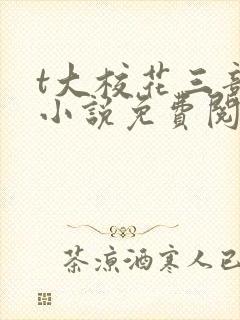 t大校花三部
小说免费阅
茶凉酒寒人已